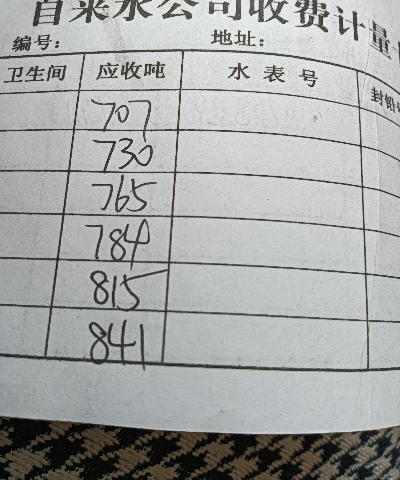 自来水公司收费计量
编号： 地址：
卫生间 应收吨 水表号 封铅
707
730
765
784
815
841